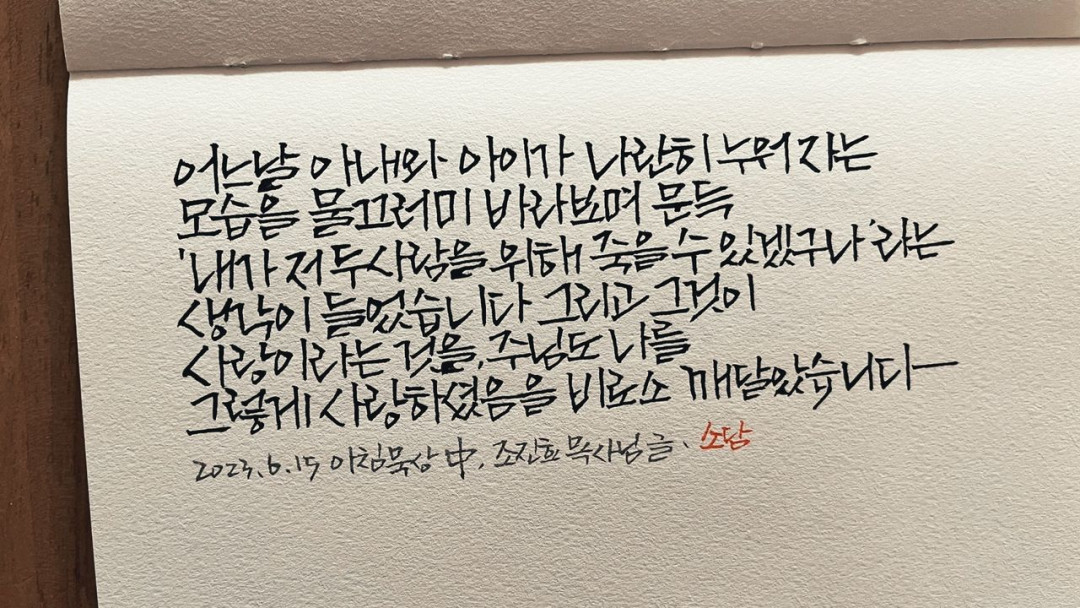 어느날 아내와 아이가 나란히 누워 자는
모습을 물끄러미 바라보며 문득
'내가 저 두사람을 위해 죽을 수 있겠구나'라는
생각이 들었습니다 그리고 그것이
사랑이라는 것을, 주님도 나를
그렇게 사랑하셨음을 비로소 깨달았습니다—
2023.6.15 아침묵상 中, 조진호목사님 글. 소담